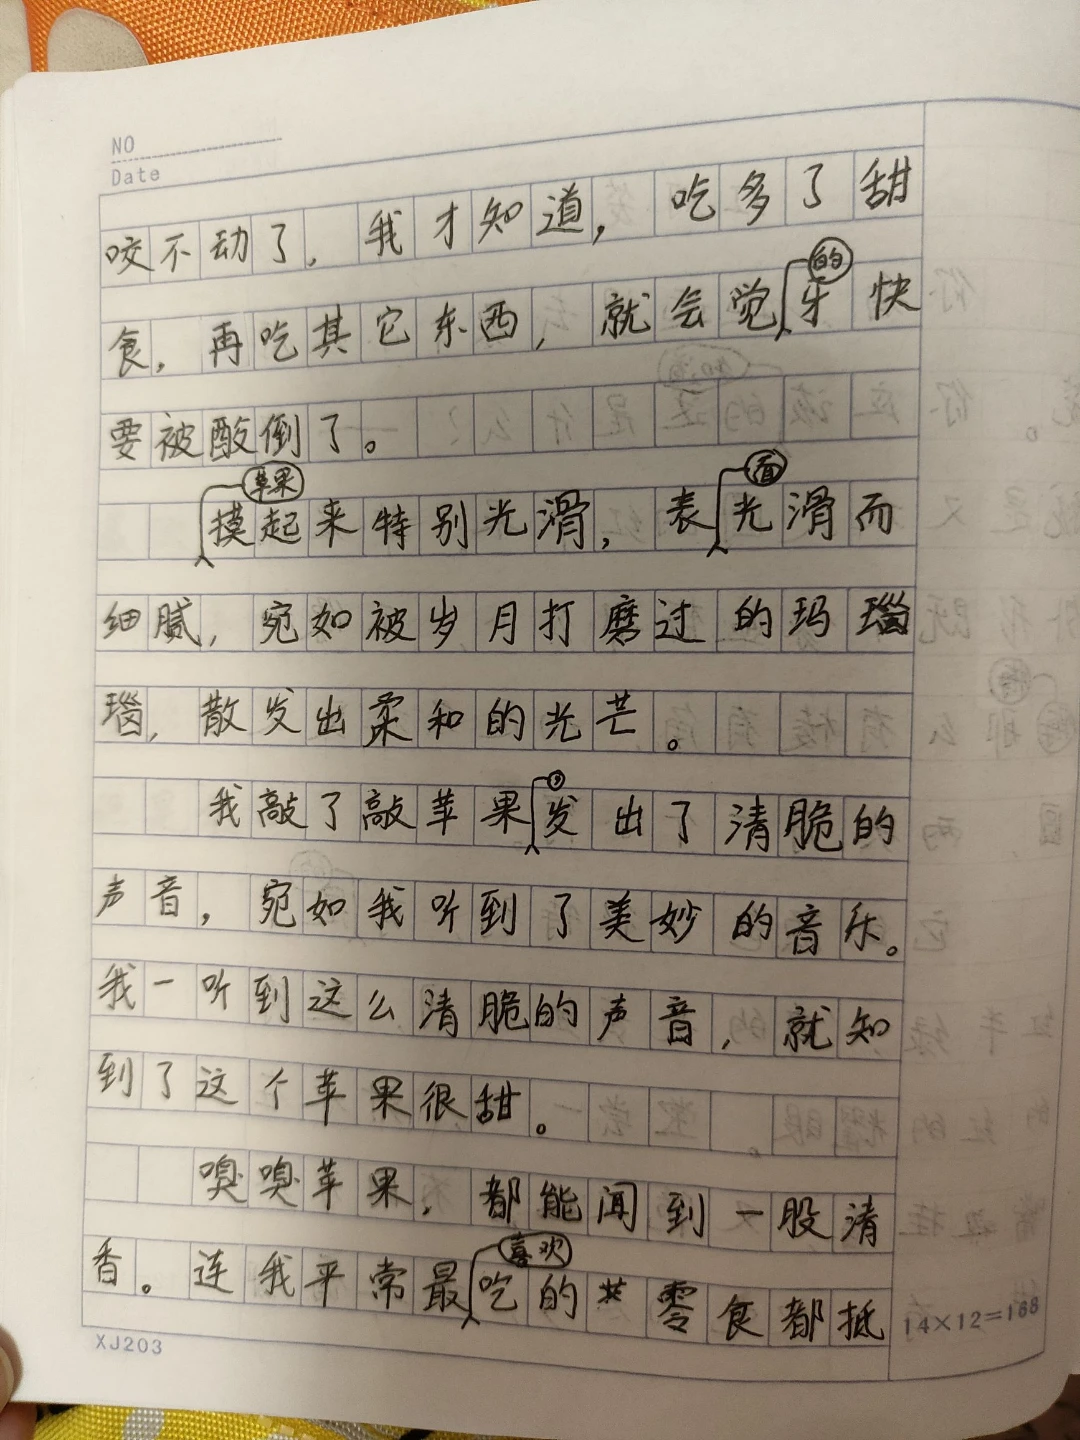 NO
Date
咬不动了，我才知道，吃多了甜
的
食，再吃其它东西，就会觉牙快
要被酸倒了。
苹果 面
摸起来特别光滑，表光滑而
细腻，宛如被岁月打磨过的玛瑙
瑙，散发出柔和的光芒。
，
我敲了敲苹果发出了清脆的
声音，宛如我听到了美妙的音乐。
我一听到这么清脆的声音，就知
到了这个苹果很甜。
嗅嗅苹果，都能闻到一股清
喜欢
香。连我平常最吃的零食都抵
XJ203
14×12=168